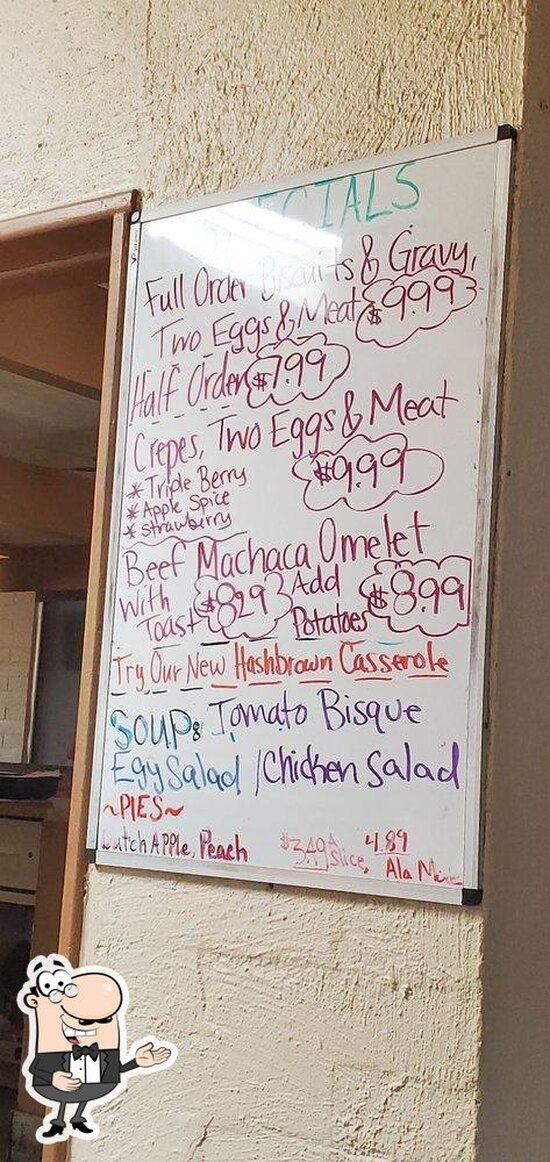 SPECIALS
Full Order Biscuits & Gravy,
Two Eggs & Meat $9.99
Half Order $7.99
Crepes, Two Eggs & Meat
* Triple Berry $9.99
* Apple Spice
* Strawberry
Beef Machaca Omelet
With Toast $8.29 Add Potatoes $8.99
Try Our New Hashbrown Casserole
SOUP: Tomato Bisque
Egg Salad / Chicken Salad
~PIES~
Dutch APPle, Peach $3.49 A Slice, 4.89 Ala